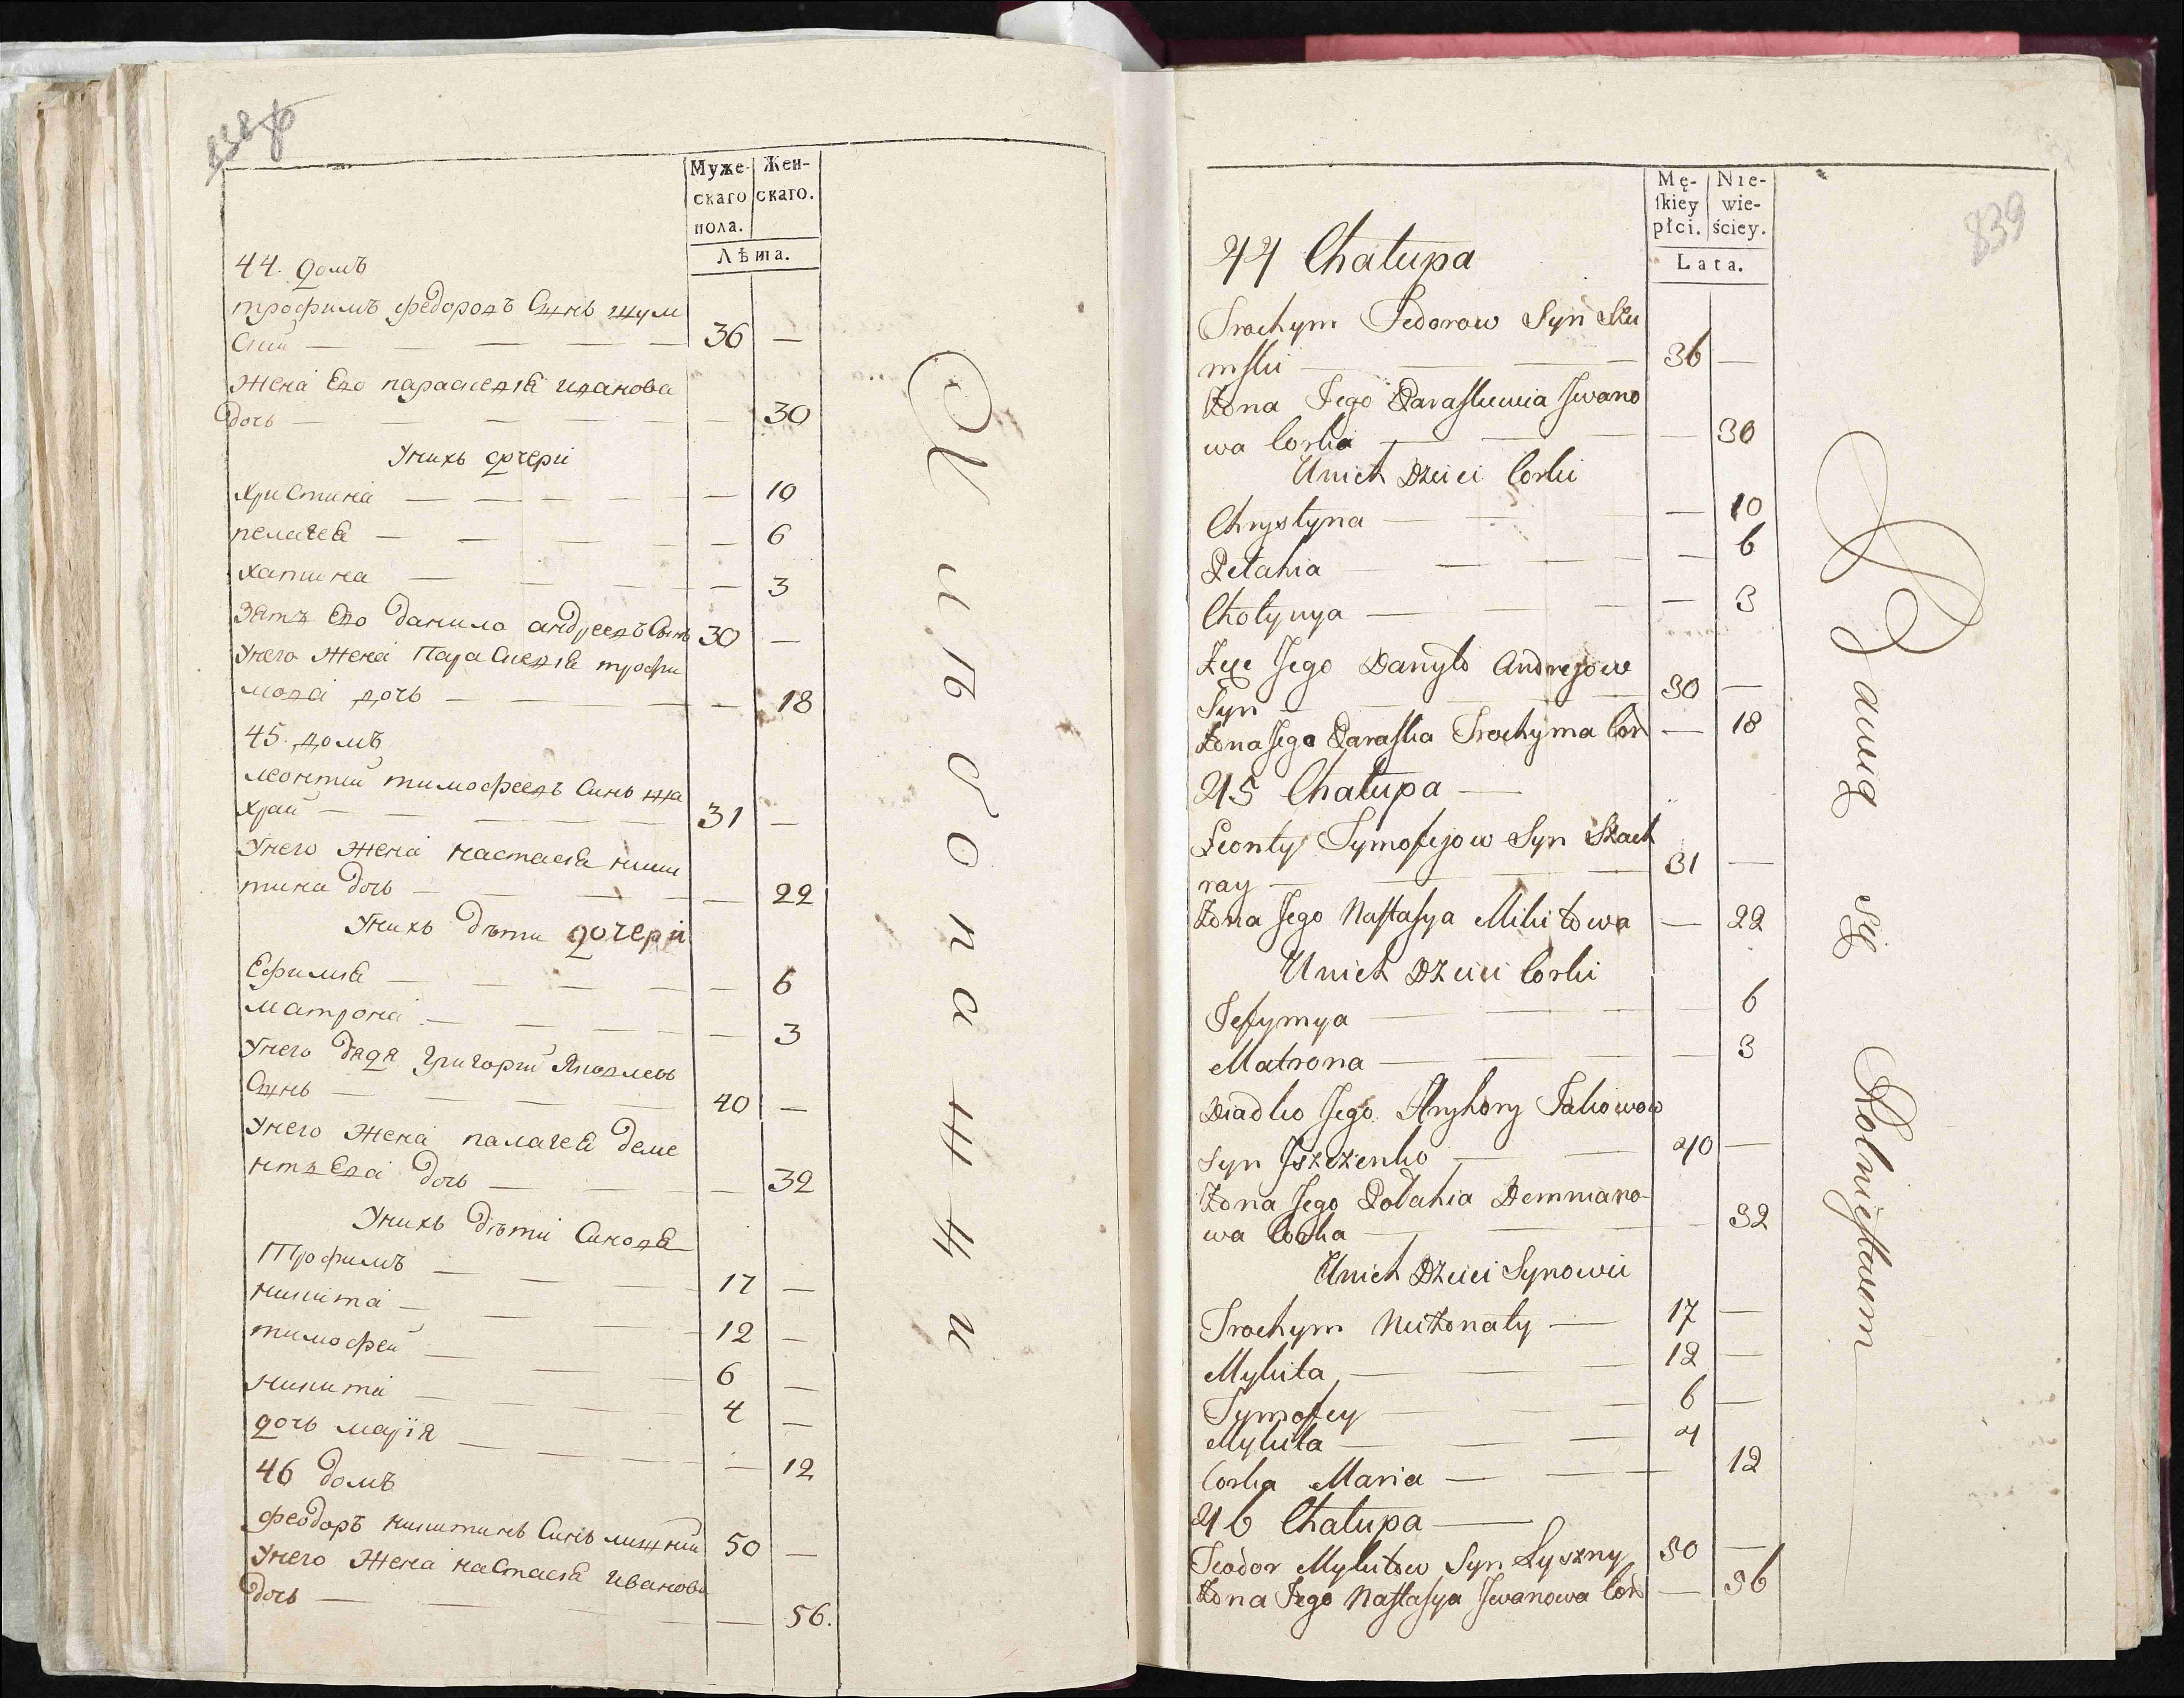 838 об
Муже-
скаго
пола.
Жен-
скаго.
Лѣта.
44. домъ
трофимъ федоровъ Сынъ шум
ский — 36 —
жена Его параскевія иванова
дочь — — 30
Унихъ дочери
христина — — 10
пелагея — — 6
хатина — — 3
Зять Его данило андреевъ Сынъ 30 —
Унего жена Параскевія трофи
мова дочь — — 18
45. домъ
леонтий тимофеевъ Синъ шка
храй — 31 —
Унего жена настасія ники
тина дочь — — 22
Унихъ дѣти дочери
Ефимія — — 6
матрона — — 3
Унего дядя григорий Яковлевъ
Сынъ — 40 —
Унего жена палагея деме
нтьева дочь — — 32
Унихъ дѣти Синовя
Трофимъ — 17 —
никита — 12 —
тимофей — 6 —
никита — 4 —
дочь марія — — 12
46 домъ
феодоръ никитинъ Синъ лишний 50 —
Унего жена настасія иванова
дочь — — 56.
Хлѣбопашци
839
Mę-
ſkiey
płci.
Nie-
wie-
ściey.
Lata.
44 Chałupa
Trochym Fedorow Syn Szu
mſki — 36 —
Żona Jego Paraſkiewia Jwano
wa Corka — — 30
Unich Dzieci Corki
Chrystyna — — 10
Pelahia — — 6
Chotynya — — 3
Zęć Jego Danyło Andrejow
Syn — 30 —
Żona Jego Paraſka Trochyma Cor — 18
45 Chałupa —
Leonty Tymofejow Syn Szach
ray — 31 —
Żona Jego Naſtaſya Mikitowa — 22
Unich Dzieci Corki
Jefymya — — 6
Matrona — — 3
Diadko Jego Hryhory Jakowow
Syn Jszczenko — 40 —
Żona Jego Polahia Demniano-
wa Corka — — 32
Unich Dzieci Synowii
Trochym Nieżonaty — 17 —
Mykita — 12 —
Tymofey — 6 —
Mykita — 4
Corka Maria — — 12
46 Chałupa —
Teodor Mykitow Syn Łyszny 50 —
Żona Jego Naſtaſya Jwanowa Cor — 56
Bawią się Rolnictwem